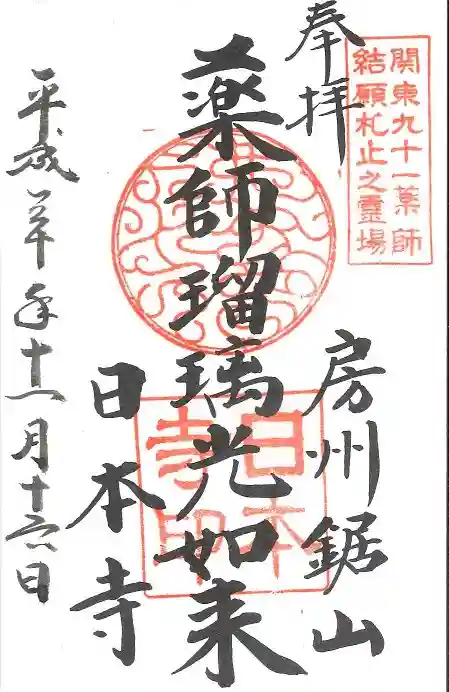 関東九十一薬師
結願札止之靈場
奉拝
房州鋸山
薬師瑠璃光如来
日本
寺印
日本寺
平成 年 月十六日